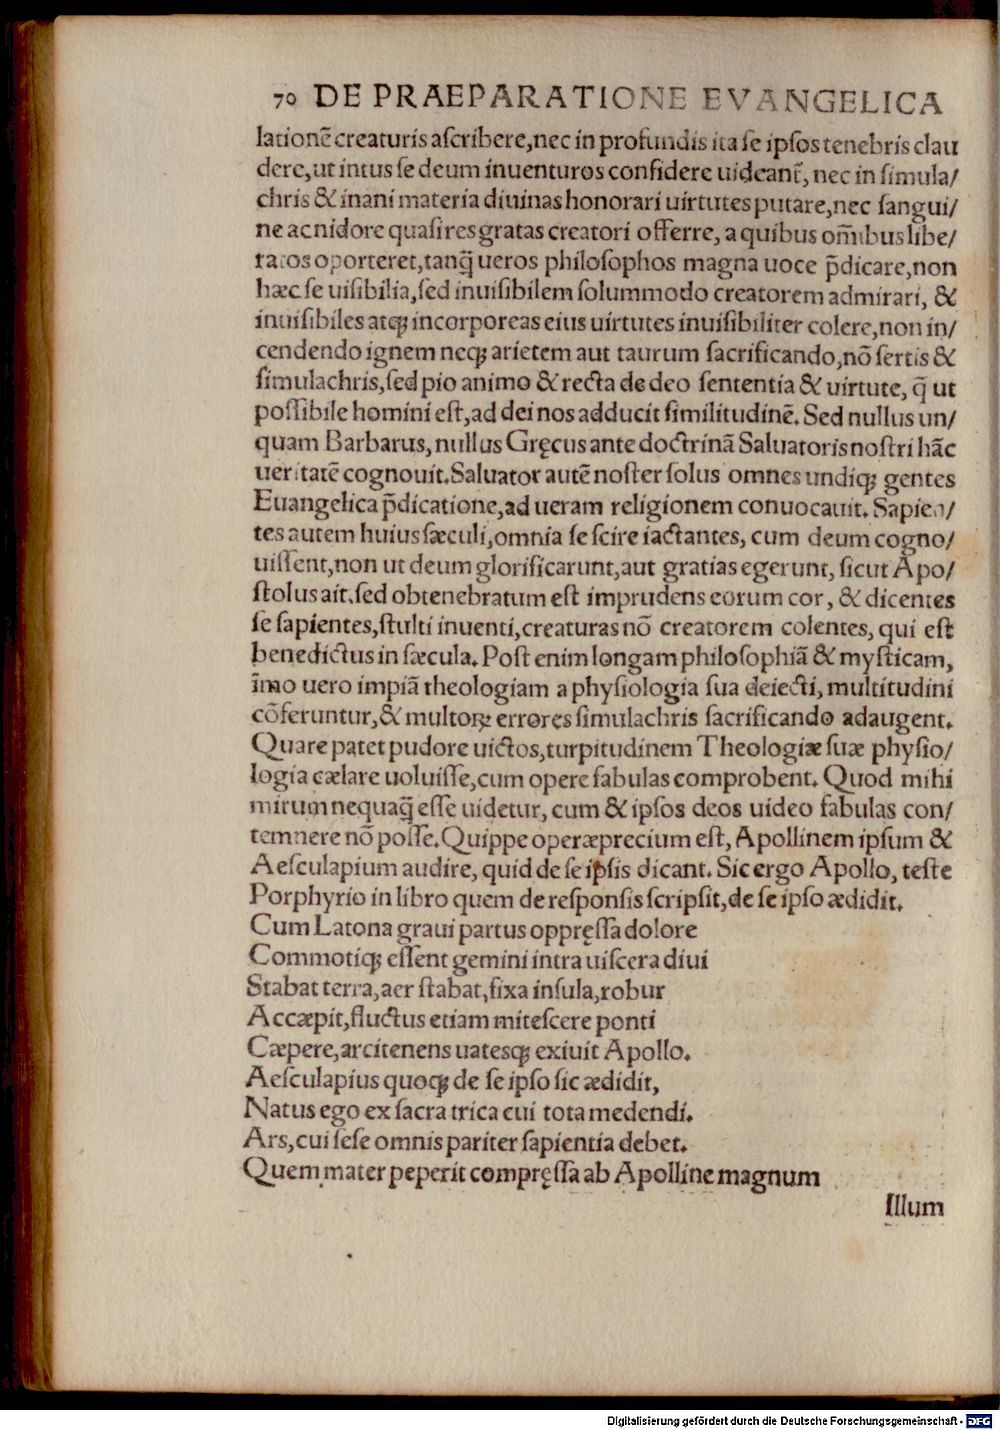 70 DE PRAEPARATIONE EVANGELICA
lationē creaturis aſcribere,nec in profundis ita ſe ipſos tenebris clau
dere,ut intus ſe deum inuenturos confidere uideant̃, nec in ſimula/
chris & inani materia diuinas honorari uirtutes putare,nec ſangui/
ne ac nidore quaſi res gratas creatori offerre, a quibus om̃ibus libe/
ratos oporteret,tanq̃ ueros philoſophos magna uoce p̄dicare,non
hæc ſe uiſibilia,ſed inuiſibilem ſolummodo creatorem admirari, &
inuiſibiles atq; incorporeas eius uirtutes inuiſibiliter colere,non in/
cendendo ignem neq; arietem aut taurum ſacrificando,nō ſertis &
ſimulachris,ſed pio animo & recta de deo ſententia & uirtute, q̃ ut
poſſibile homini eſt,ad dei nos adducit ſimilitudinē. Sed nullus un/
quam Barbarus,nullus Gręcus ante doctrinā Saluatoris noſtri hāc
ueritatē cognouit.Saluator autē noſter ſolus omnes undiq; gentes
Euangelica p̄dicatione,ad ueram religionem conuocauit. Sapien/
tes autem huius ſæculi,omnia ſe ſcire iactantes, cum deum cogno/
uiſſent,non ut deum glorificarunt,aut gratias egerunt, ſicut Apo/
ſtolus ait.ſed obtenebratum eſt imprudens eorum cor, & dicentes
ſe ſapientes,ſtulti inuenti,creaturas nō creatorem colentes, qui eſt
benedictus in ſæcula. Poſt enim longam philoſophiā & myſticam,
īmo uero impiā theologiam a phyſiologia ſua deiecti, multitudini
cōferuntur,& multoꝝ errores ſimulachris ſacrificando adaugent.
Quare patet pudore uictos,turpitudinem Theologiæ ſuæ phyſio/
logia cælare uoluiſſe,cum opere fabulas comprobent. Quod mihi
mirum nequaq̃ eſſe uidetur, cum & ipſos deos uideo fabulas con/
temnere nō poſſe.Quippe operæprecium eſt, Apollinem ipſum &
Aeſculapium audire, quid de ſe ipſis dicant. Sic ergo Apollo, teſte
Porphyrio in libro quem de reſponſis ſcripſit,de ſe ipſo ædidit.
Cum Latona graui partus oppręſſa dolore
Commotiq; eſſent gemini intra uiſcera diui
Stabat terra,aer ſtabat,fixa inſula,robur
Accæpit,fluctus etiam miteſcere ponti
Cæpere,arcitenens uatesq; exiuit Apollo.
Aeſculapius quoq; de ſe ipſo ſic ædidit,
Natus ego ex ſacra trica cui tota medendi.
Ars,cui ſeſe omnis pariter ſapientia debet.
Quem mater peperit compręſſa ab Apolline magnum
Illum
Digitalisierung gefördert durch die Deutsche Forschungsgemeinschaft - DFG